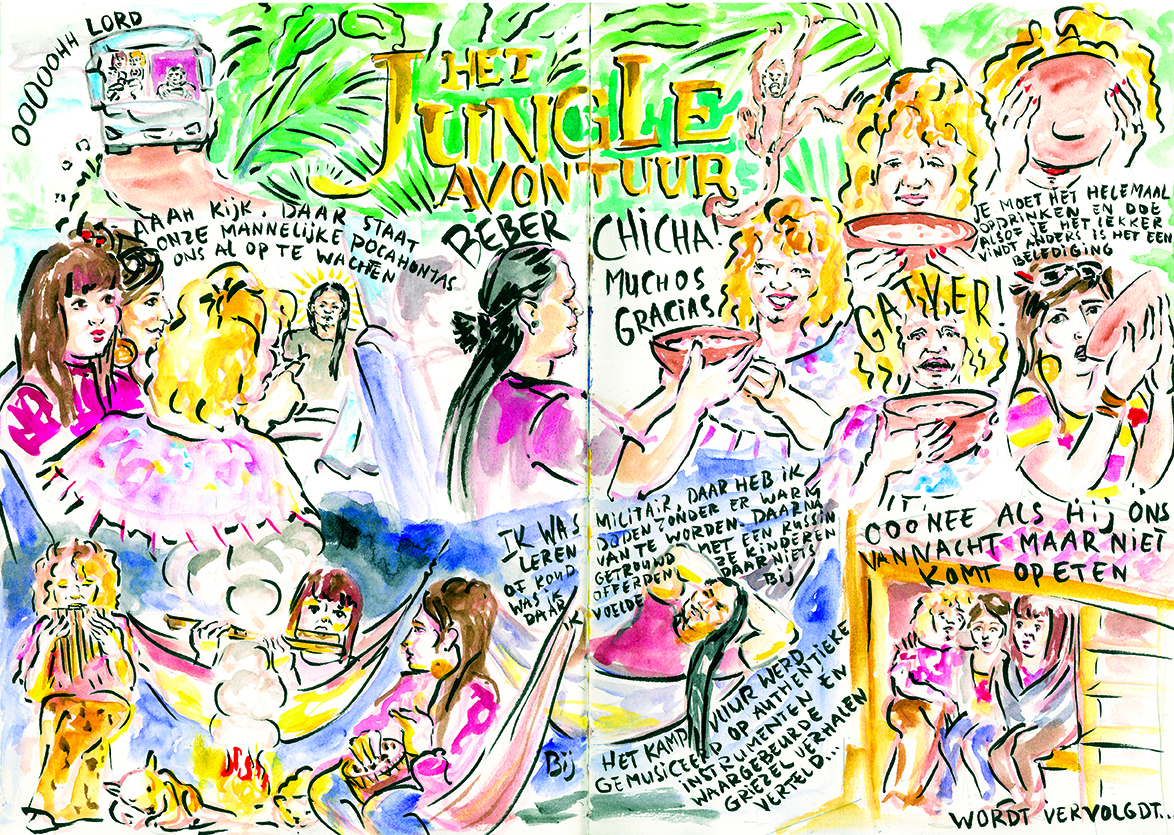 OOOOOHH LORD
HET
JUNGLE
AVONTUUR
AAAH KIJK, DAAR STAAT
ONZE MANNELIJKE POCAHONTAS
ONS AL OP TE WACHTEN
BEBER
CHICHA!
MUCHOS
GRACIAS
JE MOET HET HELEMAAL
OPDRINKEN EN DOE
ALSOF JE HET LEKKER
VINDT ANDERS IS HET EEN
BELEDIGING
GATVER!
IK WAS MILITAIR, DAAR HEB IK
LEREN DODEN ZONDER ER WARM
OF KOUD VAN TE WORDEN. DAARNA
WAS IK GETROUWD MET EEN RUSSIN
DAAR OFFERDEN ZE KINDEREN
IK VOELDE DAAR NIETS
BIJ
Bij
HET KAMPVUUR WERD
GEMUSICEERD OP AUTHENTIEKE
INSTRUMENTEN EN
WAARGEBEURDE
GRIEZEL VERHALEN
VERTELD...
OOONEE ALS HIJ ONS
VANNACHT MAAR NIET
KOMT OPETEN
WORDT VERVOLGDT..